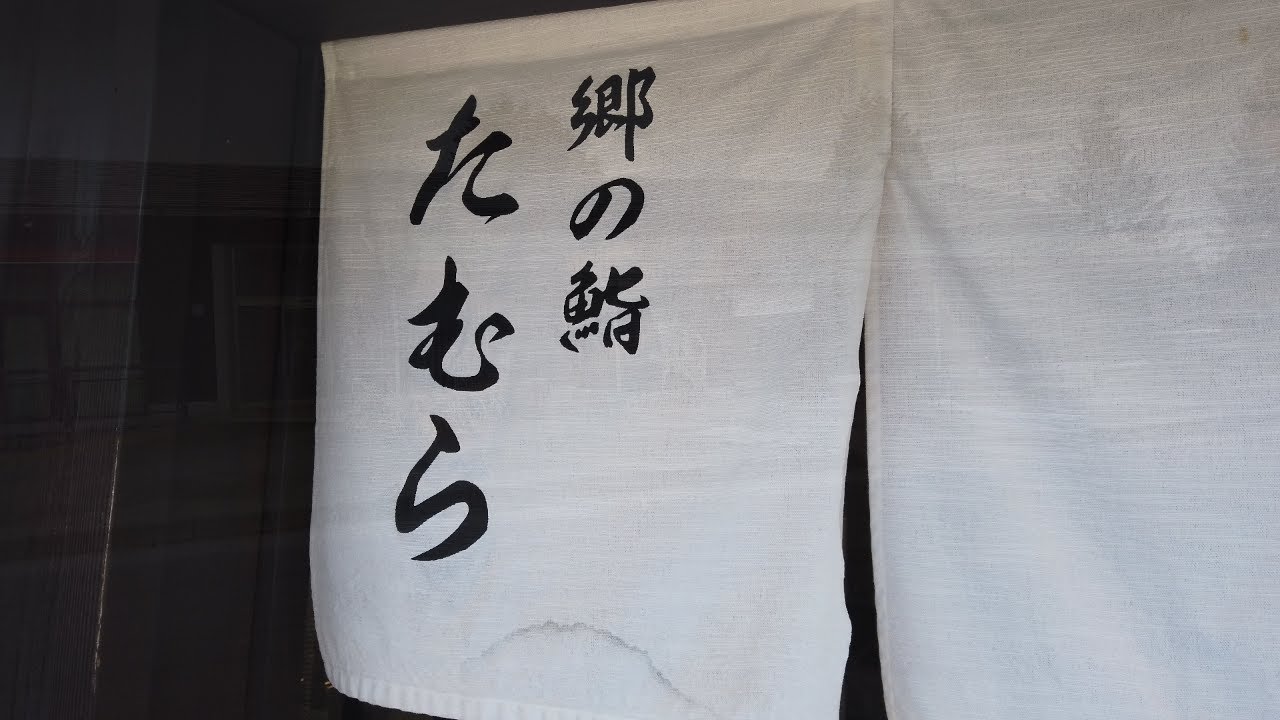 郷の鮨
たむら